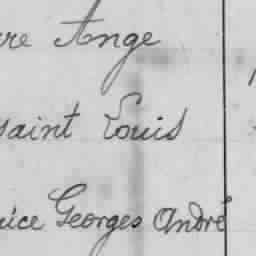 re Ange
saint Louis
ice Georges André